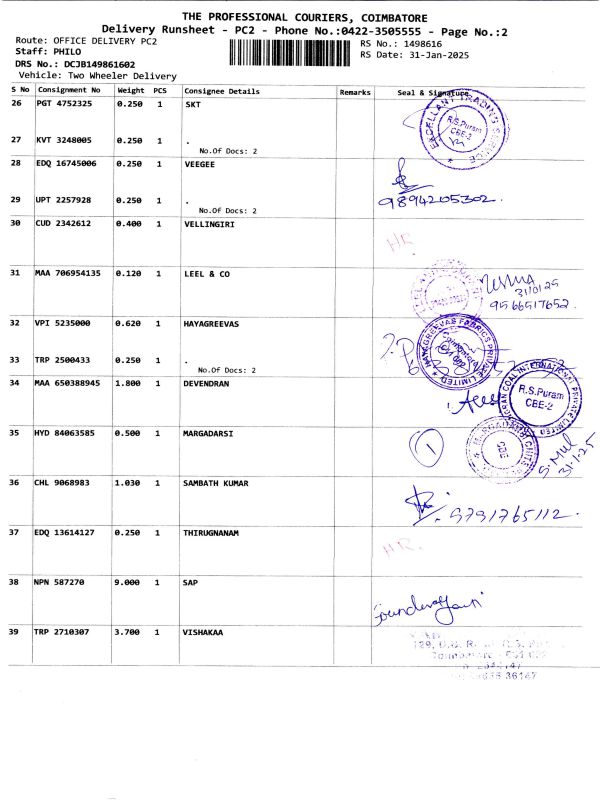 THE PROFESSIONAL COURIERS, COIMBATORE
Delivery Runsheet - PC2 - Phone No.:0422-3505555 - Page No.:2
Route: OFFICE DELIVERY PC2
RS No.: 1498616
Staff: PHILO
RS Date: 31-Jan-2025
DRS No.: DCJB149861602
Vehicle: Two Wheeler Delivery
S No Consignment No Weight PCS Consignee Details Remarks Seal & Signature
26 PGT 4752325 0.250 1 SKT
EXCELLANT TRADING SERVICE
R.S.Puram
CBE-2
27 KVT 3248005 0.250 1 .
No.Of Docs: 2
28 EDQ 16745006 0.250 1 VEEGEE
29 UPT 2257928 0.250 1 .
9894205302.
No.Of Docs: 2
30 CUD 2342612 0.400 1 VELLINGIRI
HR
31 MAA 706954135 0.120 1 LEEL & CO
31/01/25
9566517652.
32 VPI 5235000 0.620 1 HAYAGREEVAS
HAYAGREEVAS FABRICS PRIVATE LIMITED
33 TRP 2500433 0.250 1 .
No.Of Docs: 2
34 MAA 650388945 1.800 1 DEVENDRAN
COAL INTERNATIONAL PRIVATE LIMITED
R.S.Puram
CBE-2
35 HYD 84063585 0.500 1 MARGADARSI
1
CBE
31-1-25
36 CHL 9068983 1.030 1 SAMBATH KUMAR
9791765112.
37 EDQ 13614127 0.250 1 THIRUGNANAM
HR.
38 NPN 587270 9.000 1 SAP
39 TRP 2710307 3.700 1 VISHAKAA
36147